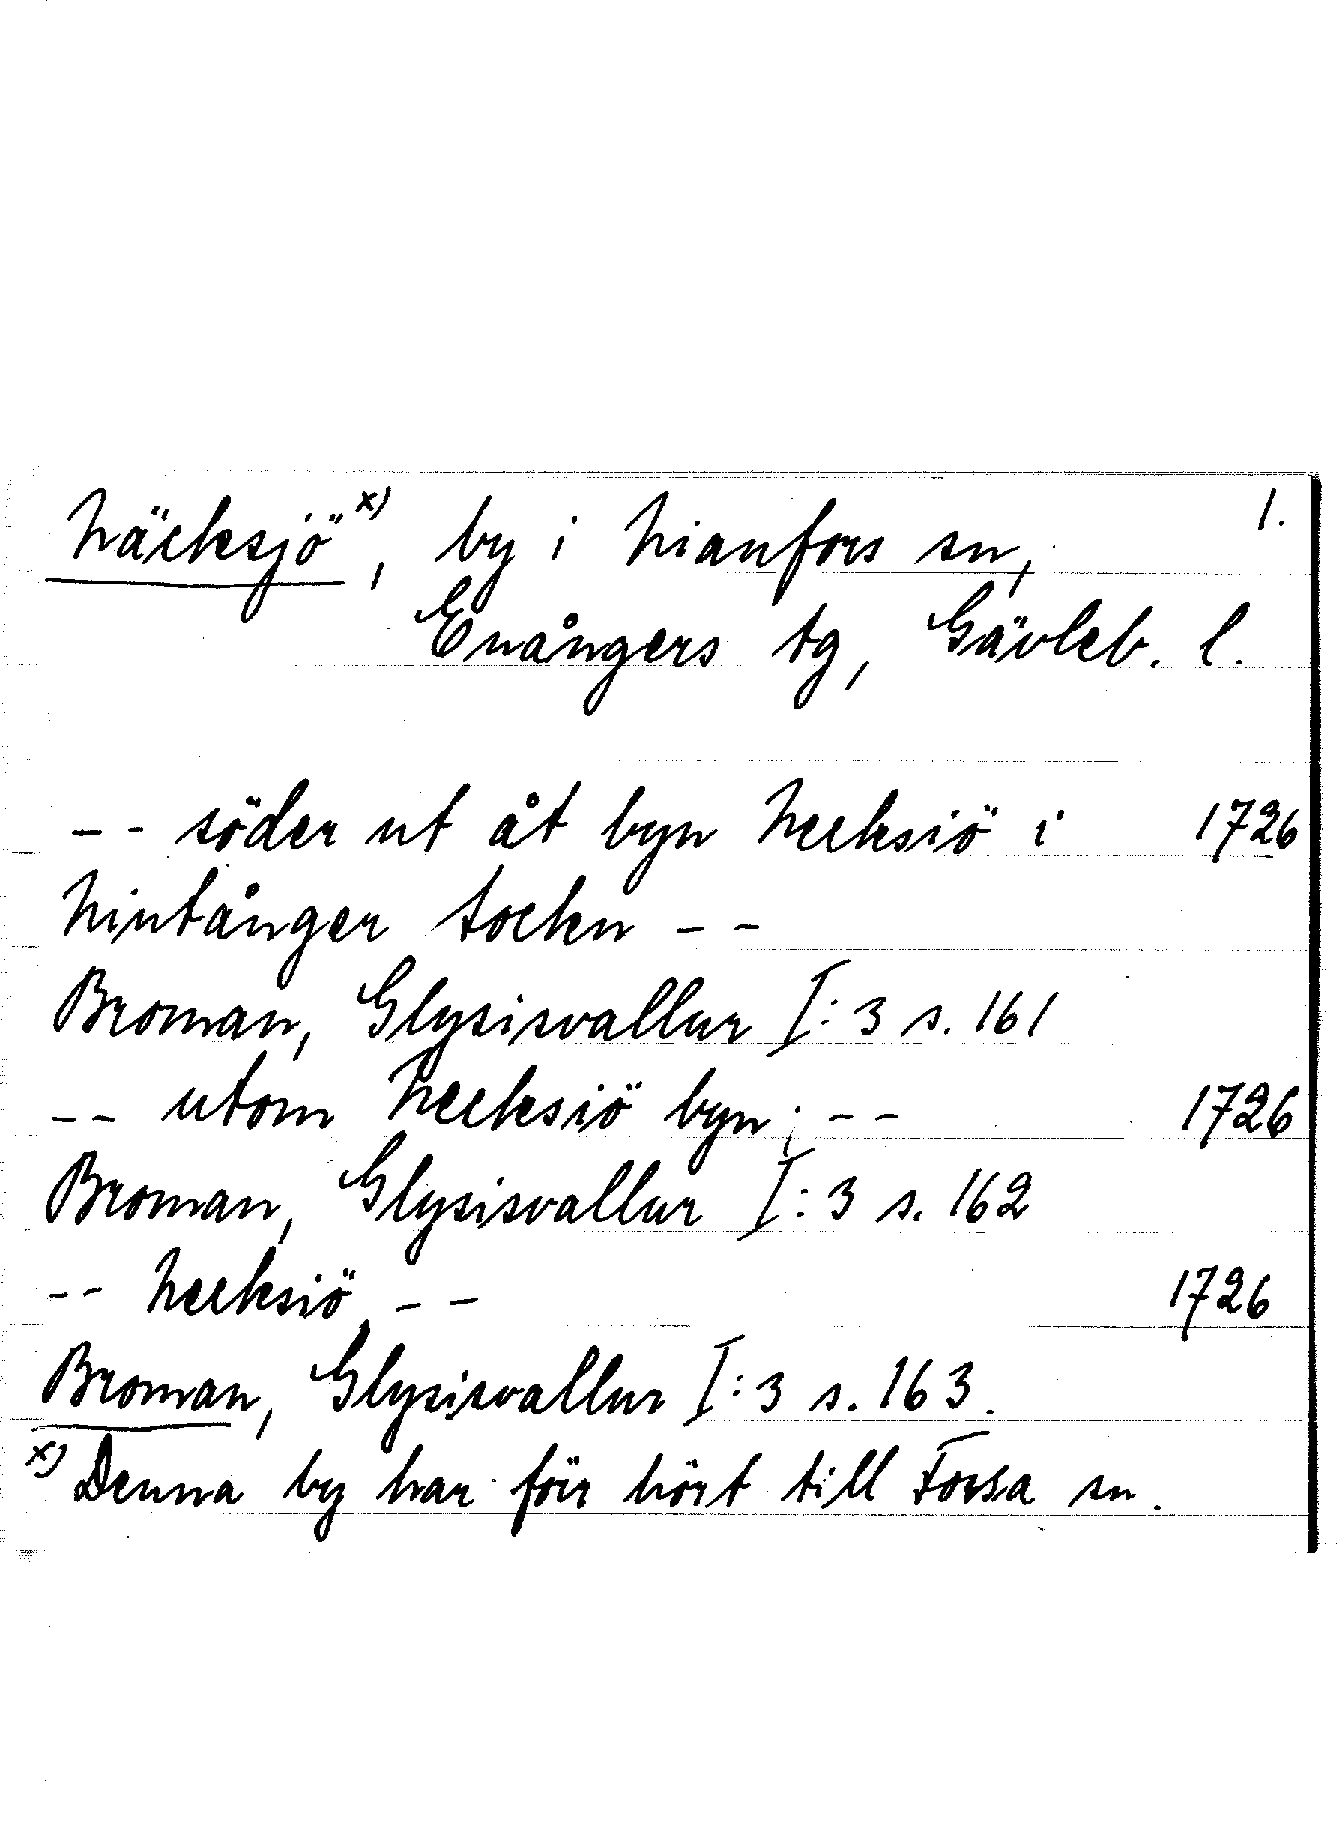 Näcksjö x), by i Nianfors sn, 1.
Enångers tg, Gävleb. l.
-- söder ut åt byn Necksiö i 1726
Niutånger sockn --
Broman, Glysisvallur I:3 s. 161
-- utom Necksiö byn; -- 1726
Broman, Glysisvallur I:3 s. 162
-- Necksiö -- 1726
Broman, Glysisvallur I:3 s. 163.
x) Denna by har förr hört till Forsa sn.